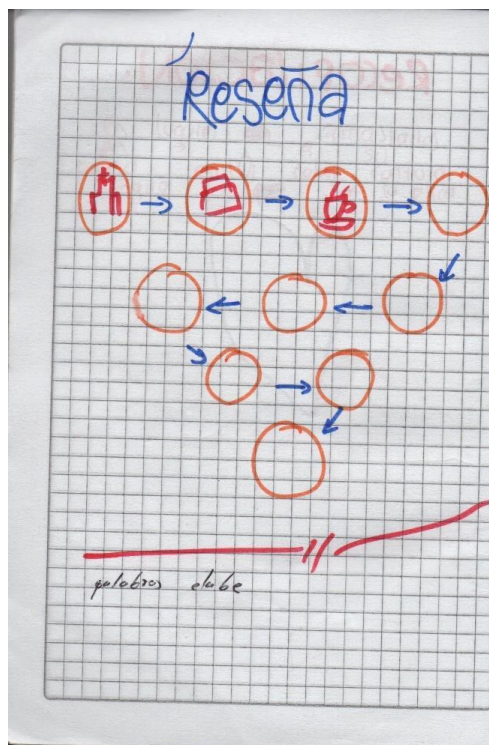 Reseña
palabras clabe